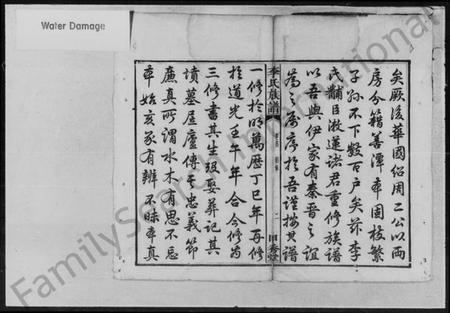 Water Damage
矣厥後華國紹周二公以兩
房分籍善潭本固枝繁
子孫不下數百戶矣茲李
氏黼臣淑蓮諸君重修族譜
以吾與伊家有秦晉之誼
為之屬序於吾謹按其譜
李氏族譜
二
一修於明萬歷丁巳年再修
於道光壬午年合今修為
三修書其生歿娶葬記其
墳墓屋廬傳其忠義節
廉真所謂水木有思不忘
本始亥豕有辨不昧本真
FamilySearch International